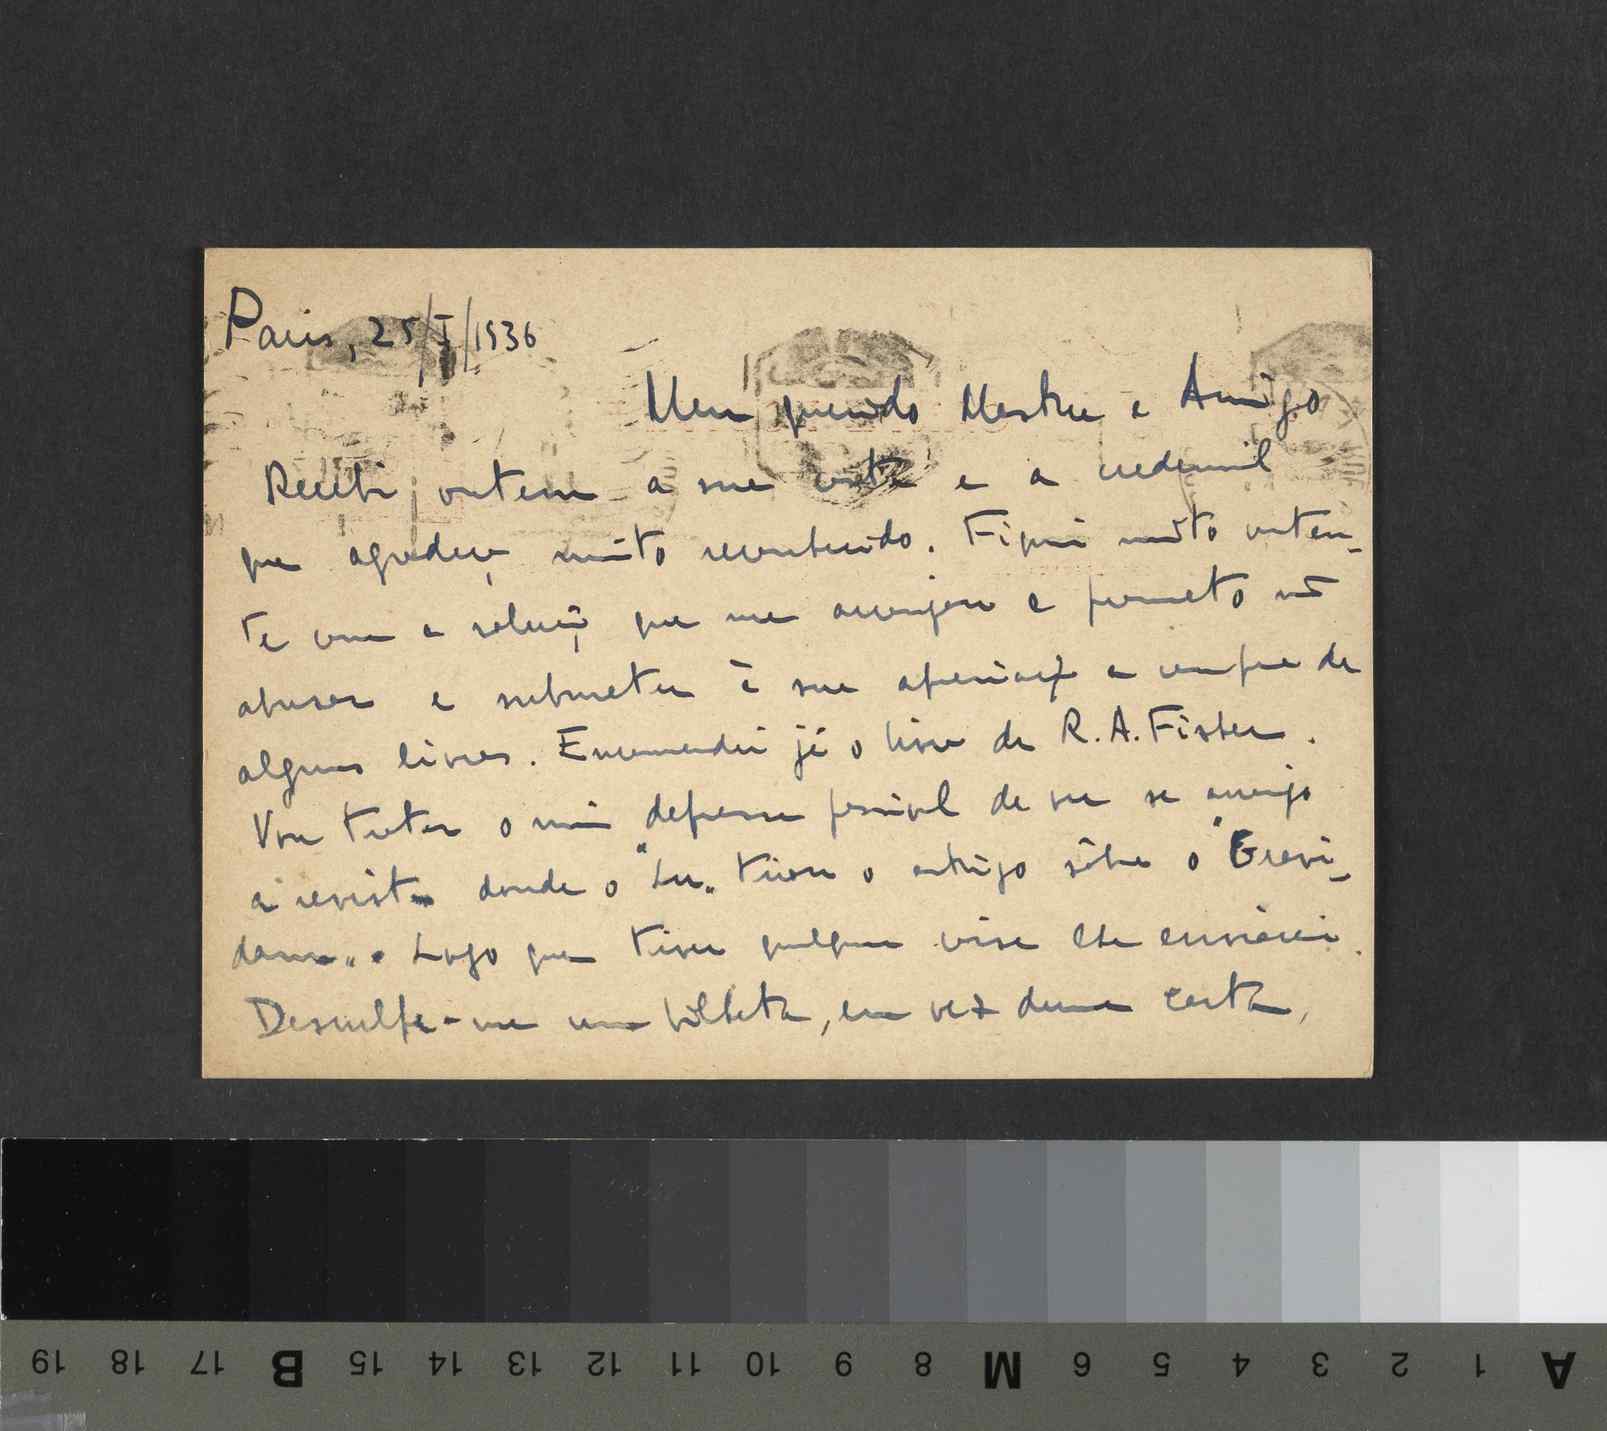 Paris, 25/I/1936
Meu querido Mestre e Amigo
Recebi ontem a sua carta e a credencial
que agradeço muito reconhecido. Fiquei muito conten-
te com a solução que me arranjou e prometo não
abusar e submeter à sua apreciação a compra de
alguns livros. Encomendei já o livro de R. A. Fisher.
Vou tratar o mais depressa possível de ver se arranjo
a revista donde o "Lu" tirou o artigo sôbre o "Gravi-
dame". Logo que tiver qualquer coisa lhe enviarei.
Desculpe-me um bilhete, em vez duma carta,
A 1 2 3 4 5 6 M 8 9 10 11 12 13 14 15 B 17 18 19